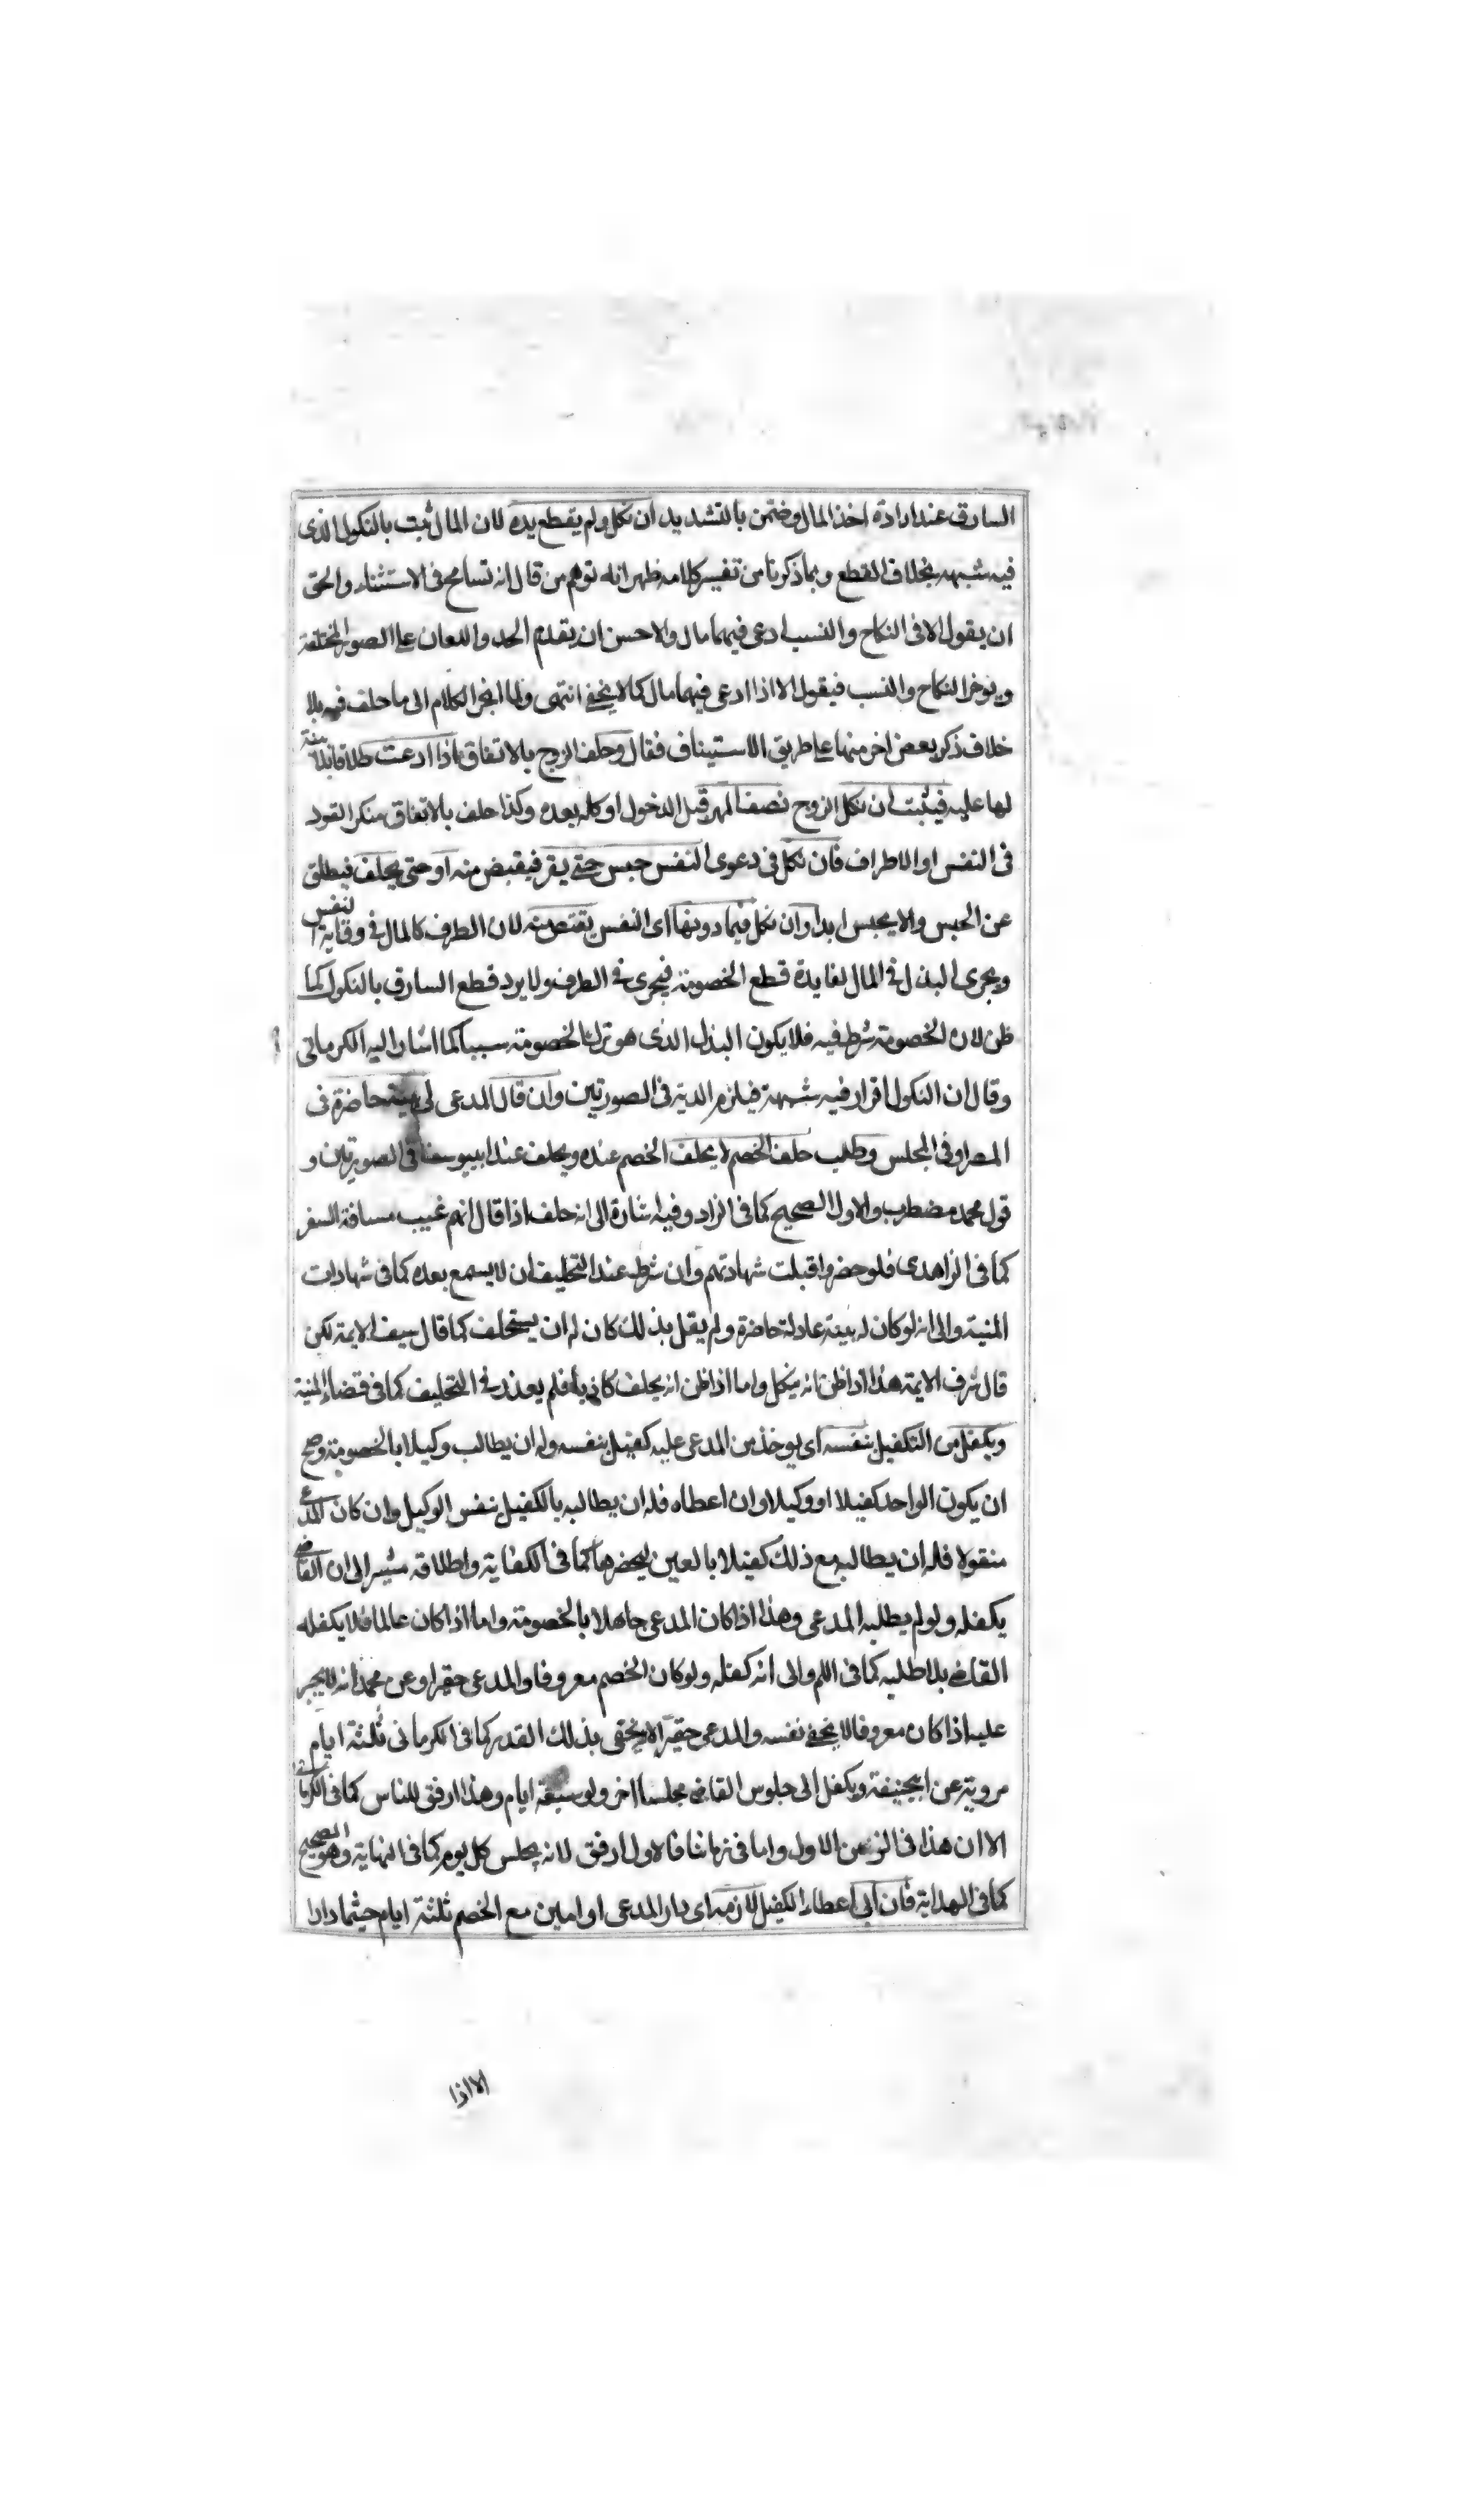 السارق عند ارادة اخذ المال وضمن بالتشديد ان نكل ولم يقطع يده لان المال ثبت بالنكول الذى
فيه شبهة بخلاف القطع وبما ذكرنا من تفسير كلامه ظهر انه توهم من قال انه تسامح فى الاستثناء والحق
ان يقول الا فى النكاح والنسب ادعى فيهما مال والاحسن ان يقدم الحد واللعان على الصور المختلفة
ويوخر النكاح والنسب فيقول الا اذا ادعى فيهما مال كما لا يخفى انتهى ولما انجر الكلام الى ما حلف فيه بلا
خلاف ذكر بعض اخر منها على طريق الاستيناف فقال وحلف الزوج بالاتفاق اذا ادعت طلاقا بلا بينة
لها عليه فيثبت ان نكل الزوج نصف المهر قبل الدخول او كله بعده وكذا حلف بالاتفاق منكر القود
فى النفس او الاطراف فان نكل فى دعوى النفس حبس حتى يقر فيقبض منه او حتى يحلف فيطلق
عن الحبس والا يحبس ابدا وان نكل فيما دونها اى النفس يقتص منه لان الطرف كالمال فى وقاية النفس
ويجرى البذل فى المال لفايدة قطع الخصومة فيجرى فى الطرف ولا يرد قطع السارق بالنكول كما
ظن لان الخصومة شرط فيه فلا يكون البذل الذى هو ترك الخصومة سببا كما اشار اليه الكرمانى
وقال ان النكول اقرار فيه شبهة فيلزم الدية فى الصورتين وان قال المدعى لى بينة حاضرة فى
المصر او فى المجلس وطلب حلف الخصم لا يحلف الخصم عنده ويحلف عند ابيوسف فى الصورتين و
قول محمد مضطرب والاول الصحيح كما فى الزاد وفيه اشارة الى انه حلف اذا قال انهم غيب مسافة السفر
كما فى الزاهدى فلو حضروا قبلت شهادتهم وان شرط عند التحليف ان لا يسمع بعده كما فى شهادات
المنية والى انه لو كان له بينة عادلة حاضرة ولم يقل بذلك كان له ان يستحلف كما قال سيف الايمة لكن
قال شرف الايمة هذا اذا ظن انه ينكل واما اذا ظن انه يحلف كاذبا فلم يعذر فى التحليف كما فى قضاء المنية
ويكفل من التكفيل بنفسه اى يوخذ من المدعى عليه كفيل بنفسه وله ان يطالب وكيلا بالخصومة وصح
ان يكون الواحد كفيلا او وكيلا وان اعطاه فله ان يطالبه بالكفيل بنفس الوكيل وان كان المدعى
منقولا فله ان يطالبه مع ذلك كفيلا بالعين ليحضرها كما فى الكفاية واطلاقه مشير الى ان القاضى
يكفله ولو لم يطلبه المدعى وهذا اذا كان المدعى جاهلا بالخصومة واما اذا كان عالما فلا يكفله
القاضى بلا طلبه كما فى اللم والى انه كفله ولو كان الخصم معروفا والمدعى حقيرا وعن محمد انه لا يجبر
عليه اذا كان معروفا لا يخفى نفسه والمدعى حقيرا لا يخفى بذلك القدر كما فى الكرمانى ثلثة ايام
مروية عن ابيحنيفة ويكفل الى جلوس القاضى مجلسا اخر ولو سبعة ايام وهذا ارفق للناس كما فى الكرمانى
الا ان هذا فى الزمن الاول واما فى زماننا فالاول ارفق لانه يجلس كل يوم كما فى النهاية وهو الصحيح
كما فى الهداية فان ابى اعطاء الكفيل لازمه اى دار المدعى او امين مع الخصم ثلثة ايام حيثما دارا
الا اذا